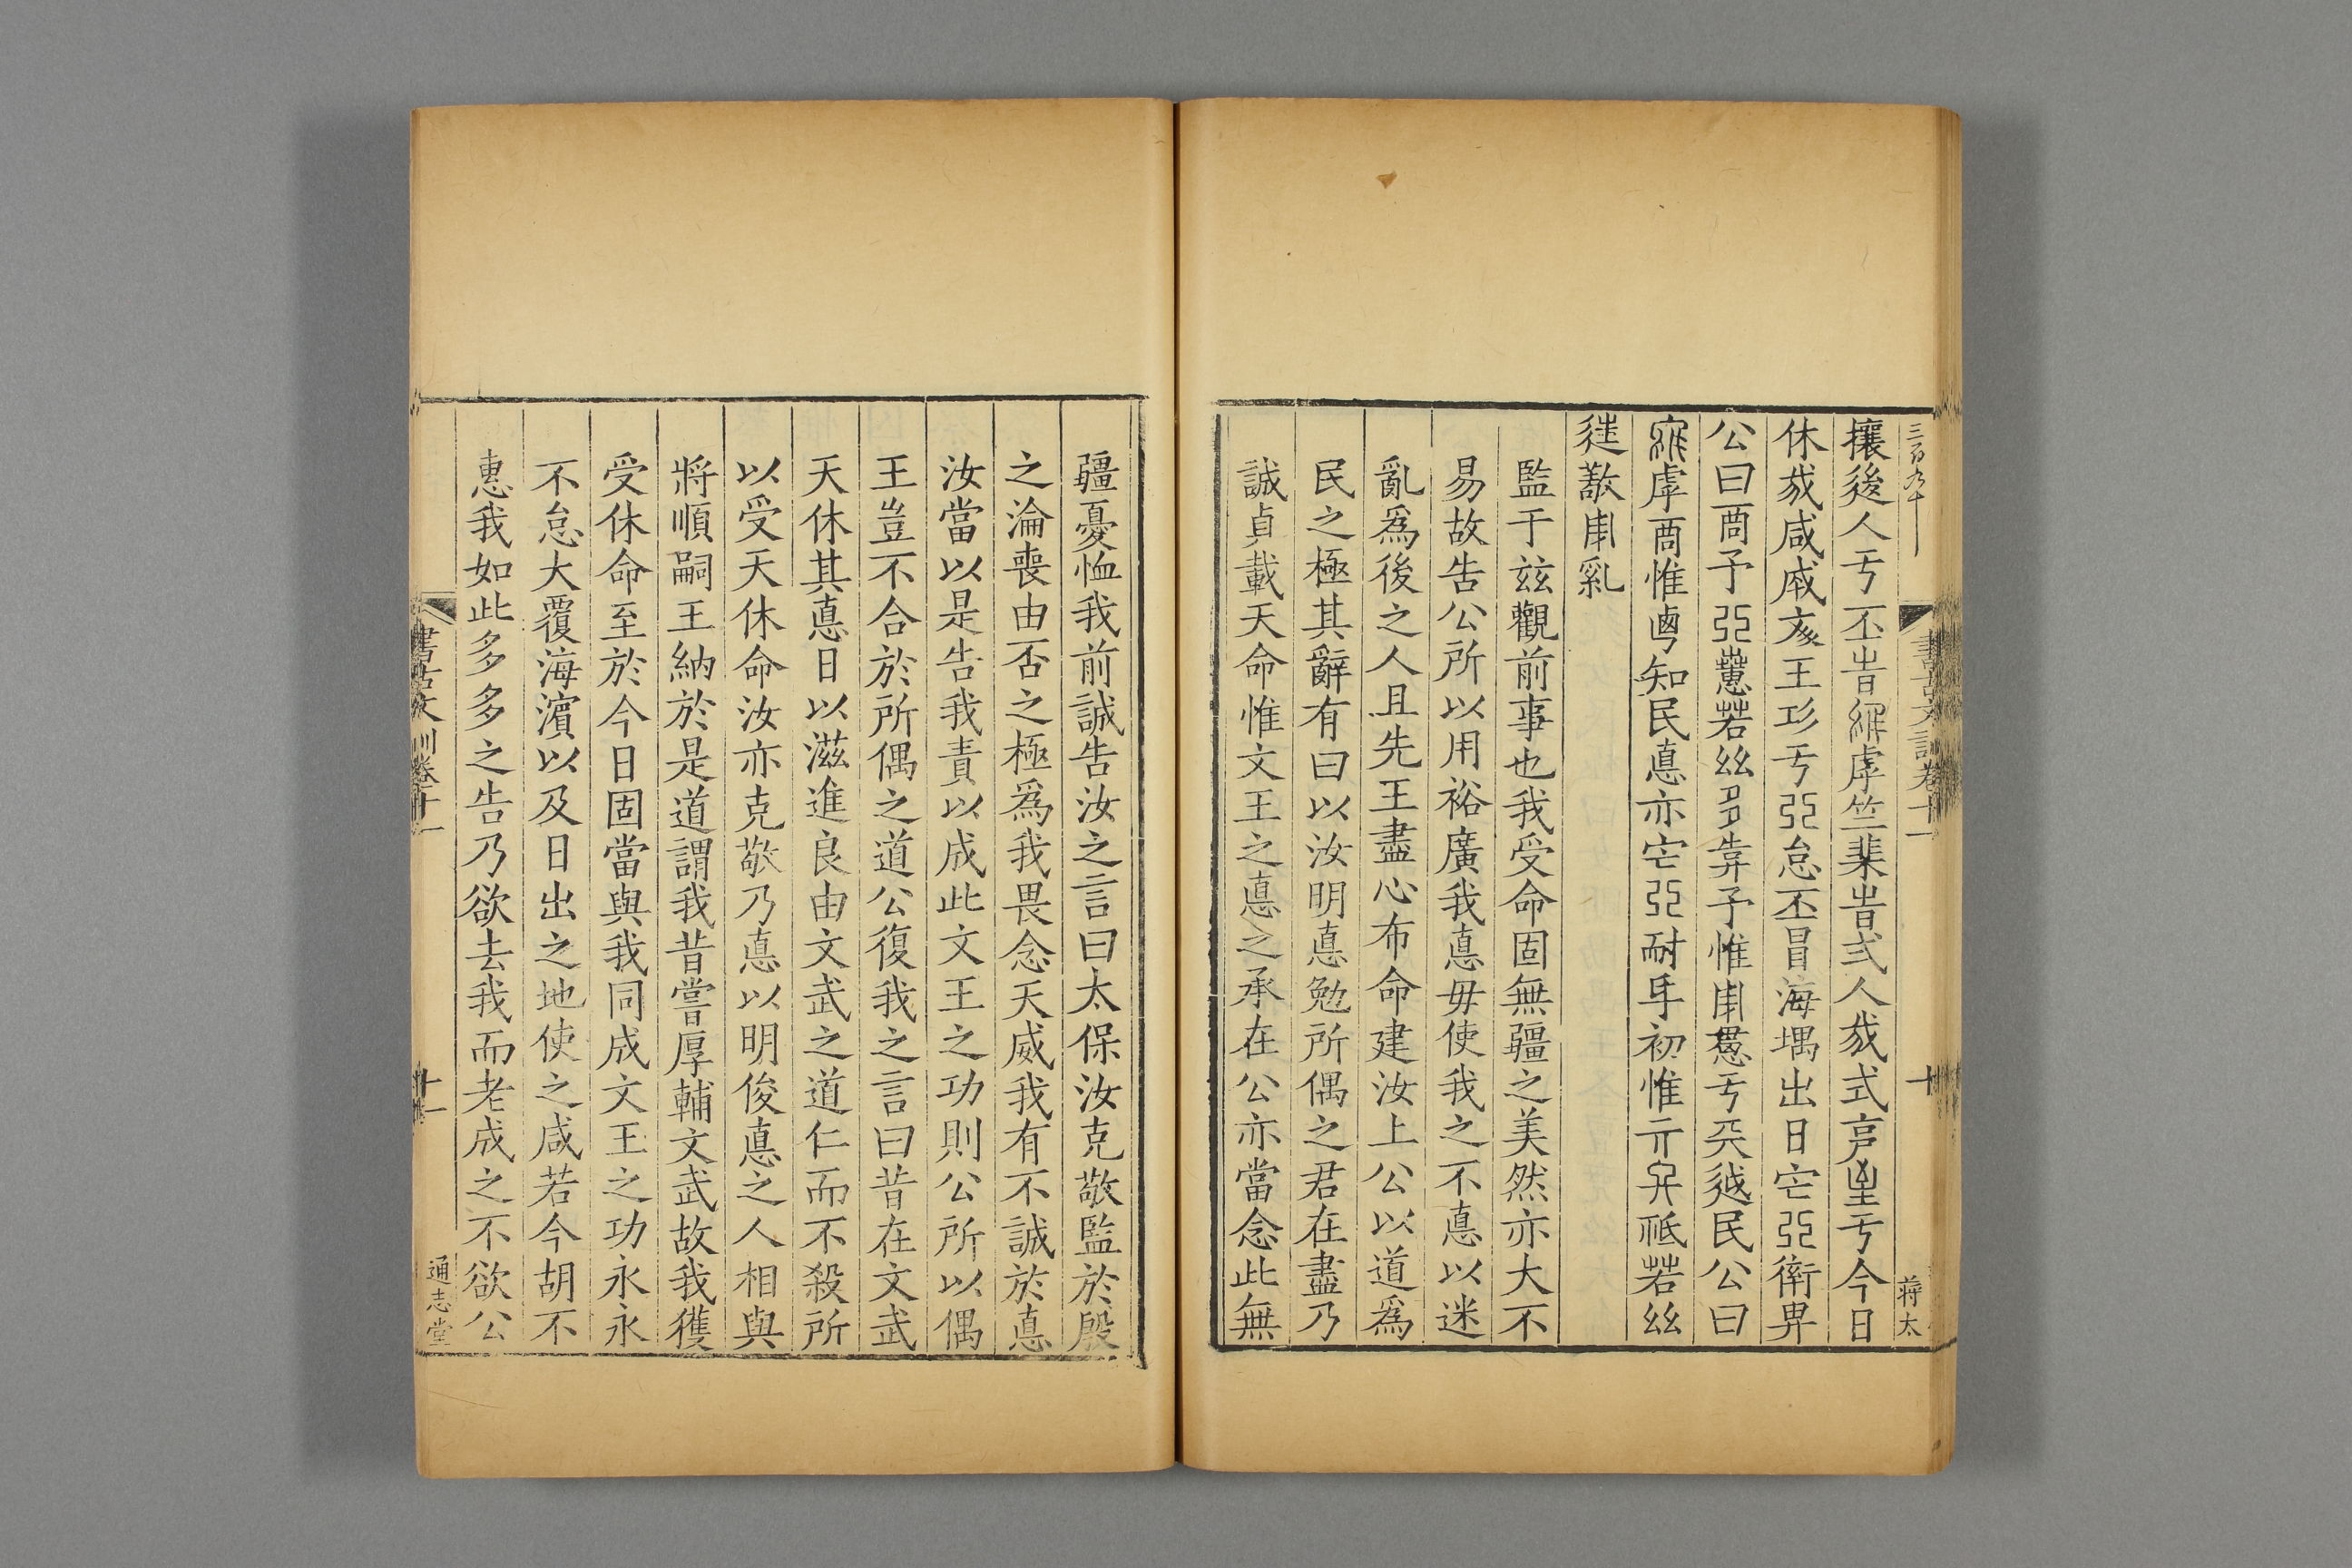 三百九十
書古文訓卷十一
十
蔣太
攘後人亐丕旹𦀚虖竺棐旹弍人𢦏式㐭𡴞亐今日
休𢦏咸戚亥王㓛亐弫怠丕冒海堣出日宅弫衛畀
公曰啇予弫𢡺若丝𡖇靠予惟𤰃𢝊亐兲䟠民公曰
𦀚虖啇惟𠧟知民悳亦宅弫耐𠂹初惟亓𠔃祗若丝
𨑭敾𤰃乿
監于玆觀前事也我受命固無疆之美然亦大不
易故告公所以用裕廣我悳毋使我之不悳以迷
亂爲後之人且先王盡心布命建汝上公以道爲
民之極其辭有曰以汝明悳勉所偶之君在盡乃
誠貞載天命惟文王之悳之承在公亦當念此無
疆憂恤我前誠告汝之言曰太保汝克敬監於殷
之淪喪由否之極爲我畏念天威我有不誠於悳
汝當以是告我責以成此文王之功則公所以偶
王豈不合於所偶之道公復我之言曰昔在文武
天休其悳日以滋進良由文武之道仁而不殺所
以受天休命汝亦克敬乃悳以明俊悳之人相與
將順嗣王納於是道謂我昔嘗厚輔文武故我獲
受休命至於今日固當與我同成文王之功永永
不怠大覆海濵以及日出之地使之咸若今胡不
惠我如此多多之告乃欲去我而老成之不欲公
書古文訓卷十一
十一
通志堂